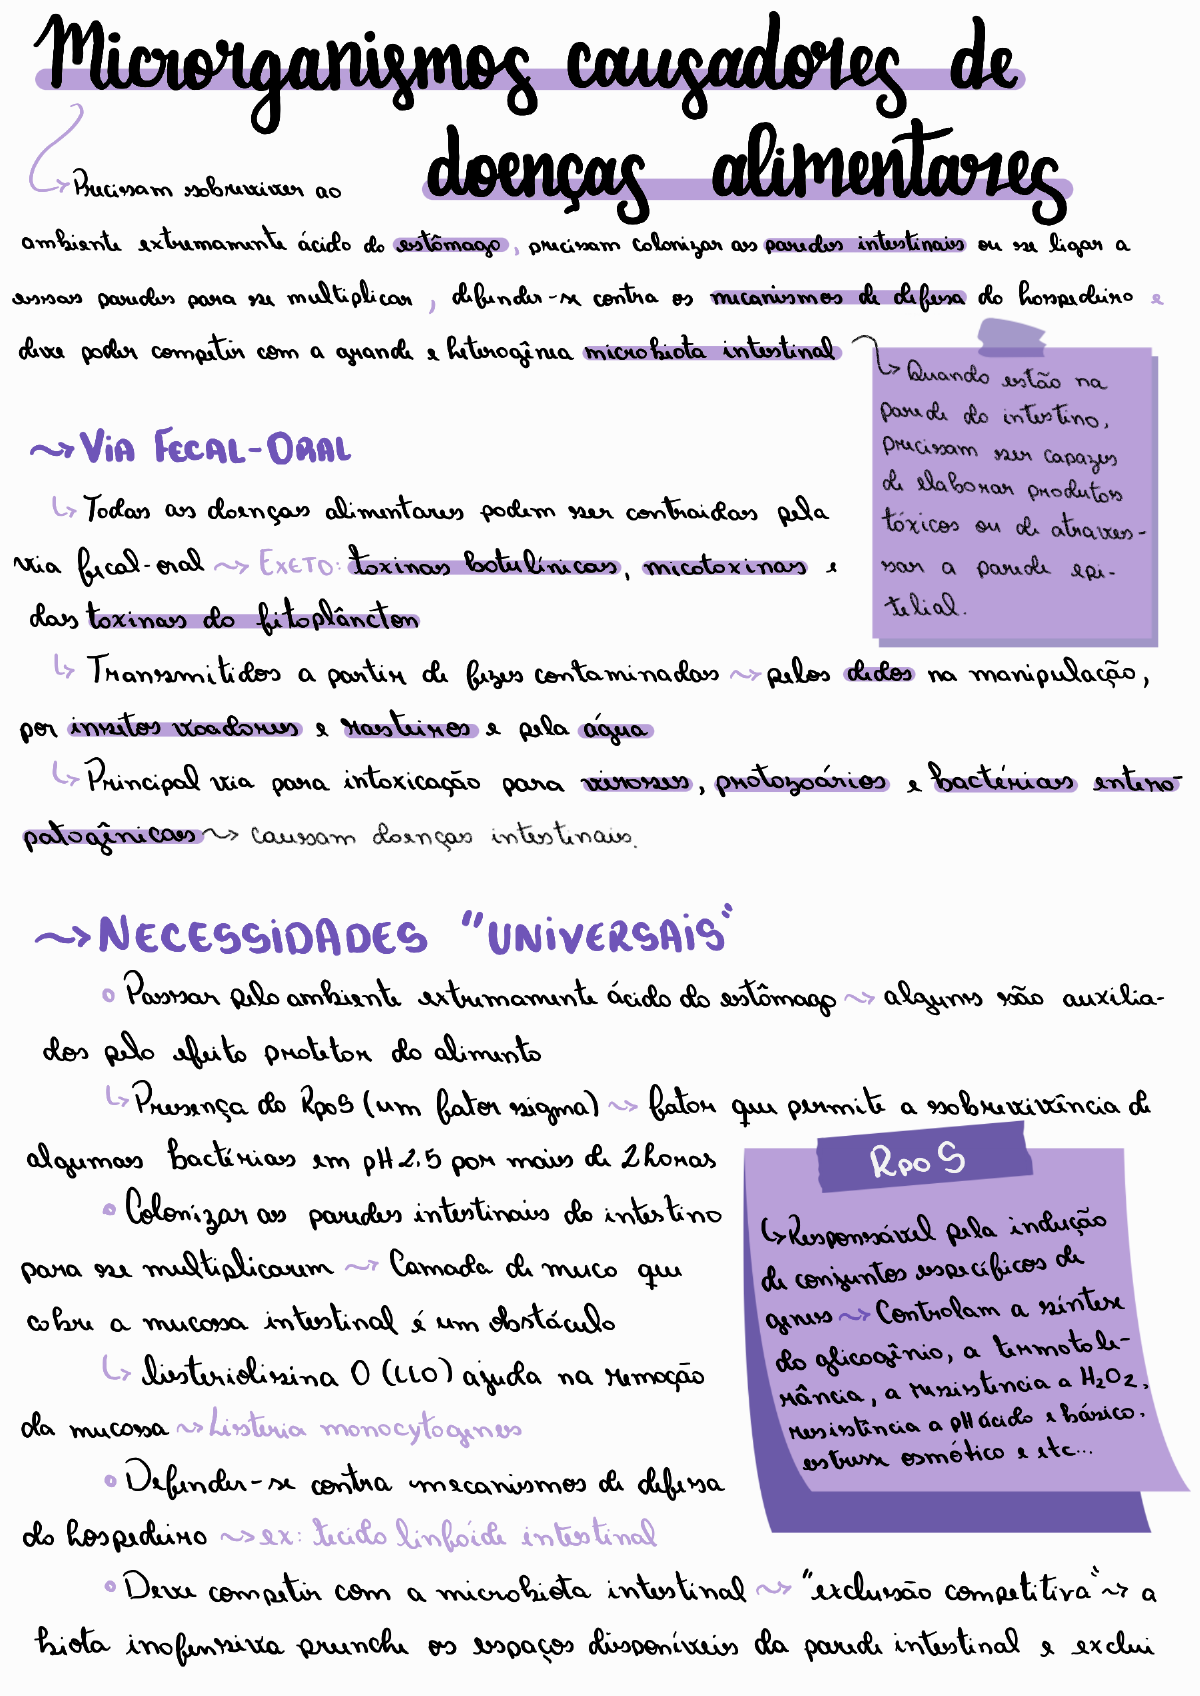 Microrganismos causadores de
doenças alimentares
↳ Precisam sobreviver ao
ambiente extremamente ácido do estômago, precisam colonizar as paredes intestinais ou se ligar a
essas paredes para se multiplicar, defender-se contra os mecanismos de defesa do hospedeiro e
deve poder competir com a grande e heterogênea microbiota intestinal
↳ Quando estão na
parede do intestino,
precisam ser capazes
de elaborar produtos
tóxicos ou de atraves-
sar a parede epi-
telial.
⤳ Via Fecal-Oral
↳ Todas as doenças alimentares podem ser contraidas pela
via fecal-oral ⤳ Exeto: toxinas botulínicas, micotoxinas e
das toxinas do fitoplâncton
↳ Transmitidos a partir de fezes contaminadas ⤳ pelos dedos na manipulação,
por insetos voadores e rasteiros e pela água
↳ Principal via para intoxicação para viroses, protozoários e bactérias entero-
patogênicas ⤳ causam doenças intestinais.
⤳ Necessidades "universais"
° Passar pelo ambiente extremamente ácido do estômago ⤳ alguns são auxilia-
dos pelo efeito protetor do alimento
↳ Presença do RpoS (um fator sigma) ⤳ fator que permite a sobrevivência de
algumas bactérias em pH 2,5 por mais de 2 horas
° Colonizar as paredes intestinais do intestino
para se multiplicarem ⤳ Camada de muco que
cobre a mucosa intestinal é um obstáculo
↳ listeriolisina O (LLO) ajuda na remoção
da mucosa ⤳ Listeria monocytogenes
° Defender-se contra mecanismos de defesa
do hospedeiro ⤳ ex: tecido linfoide intestinal
RpoS
↳ Responsável pela indução
de conjuntos específicos de
genes ⤳ Controlam a síntese
do glicogênio, a termotole-
rância, a resistencia a H₂O₂,
resistência a pH ácido e básico,
estresse osmótico e etc...
° Deve competir com a microbiota intestinal ⤳ "exclusão competitiva" ⤳ a
biota inofensiva preenche os espaços disponíveis da parede intestinal e exclui